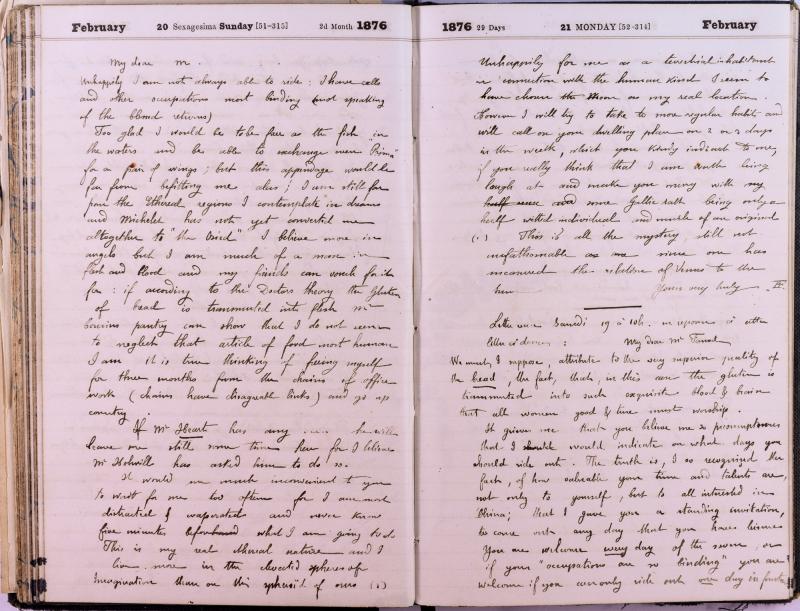 February 20 Sexagesima Sunday [51-315] 2d Month 1876
My dear M.
Unhappily I am not always able to ride: I have calls
and other occupations most binding (not speaking
of the blond returns)
Too glad I would be to be free as the fish in
the waters and be able to exchange même "Prima"
for a pair of wings; but this appendage would be
far from befitting me alas! I am still far
from the Ethereal regions I contemplate in dreams
and Michelet has not yet converted me
altogether to "the bird" I believe more in
angels but I am much of a man in
flesh and blood and my friends can vouch for it
for: if according to the Doctors theory the Gluten
of bread is transmuted into flesh Mr
pantry can show that I do not seem
to neglect that article of food most human
I am it is true thinking of freeing myself
for three months from the chains of office
work (chains have disagreable links) and go up
country.
If Mr Heart has any he will
leave me still more time here for I believe
Mr has asked him to do so.
It would be much inconvenient to you
to wait for me too often for I am most
distracted & evaporated and never know
five minutes beforehand what I am going to do
This is my real ethereal nature and I
live more in the elevated spheres of
Imagination than on this spheroid of ours (.)
1876 29 Days 21 MONDAY [52-314] February
Unhappily for me as a terrestrial inhabitant
in connection with the human kind I seem to
have chosen the Moon as my real location.
However I will try to take to more regular habits and
will call on your dwelling place on 2 or 3 days
in the week, which you kindly indicate to me,
if you really think that I am worth being
laugh at and make you merry with my
half and some Gallic salt being only a
half witted individual and much of an original
(.) This is all the mystery, still not
unfathomable as one has
the of Venus to the
Yours very truly

Letter Samedi 19 à 10h. in reponse à cette
lettre ci-dessus: My dear Mr
We must, I suppose, attribute to the very superior quality of
the bread, the fact, that, in this case the gluten is
transmuted into such exquisite blood & brain
that all women good & true must worship.
It grieves me that you believe me so presumptuous
that I should would indicate on what days you
should ride out. The truth is, I so recognized the
fact, of how valuable your time and talents are,
not only to yourself, but to all intrested in
China; that I gave you a standing invitation,
to come out any day that you have leisure
You are welcome every day of the seven, or
if your "occupations are so binding" you are
welcome if you can only ride out one day in